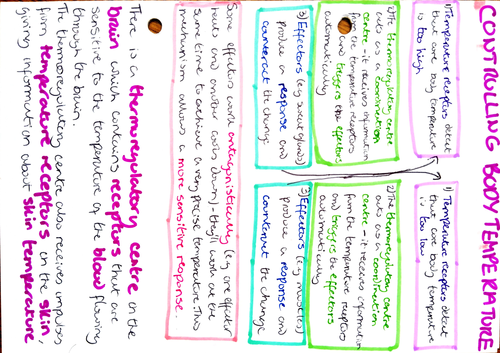 CONTROLLING BODY TEMPERATURE
1) Temperature receptors detect
that core body temperature
is too high
2) The thermoregulatory centre
acts as a coordination
centre - it receives information
from the temperature receptors
and triggers the effectors
automatically
3) Effectors (e.g sweat glands)
produce a response and
counteract the change
1) Temperature receptors detect
that core body temperature
is too low
2) The thermoregulatory centre
acts as a coordination
centre - it receives information
from the temperature receptors
and triggers the effectors
automatically
3) Effectors (e.g muscles)
produce a response and
counteract the change
Some effectors work antagonistically (e.g one effector
heats and another cools down) - they'll work at the
same time to achieve a very precise temperature. This
mechanism allows a more sensitive response.
There is a thermoregulatory centre in the
brain which contains receptors that are
sensitive to the temperature of the blood flowing
through the brain.
The thermoregulatory centre also receives impulses
from temperature receptors in the skin,
giving information about skin temperature